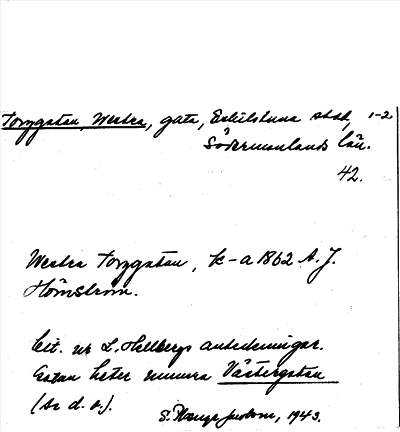 Torggatan, Westra, gata, Eskilstuna stad, 1-2
Södermanlands län.
42.
Westra Torggatan, k-a 1862 A. J.
Holmström.
Cit. ur L. Hellbergs anteckningar.
Gatan heter numera Västergatan
(Se d. o.).
S. 1943.